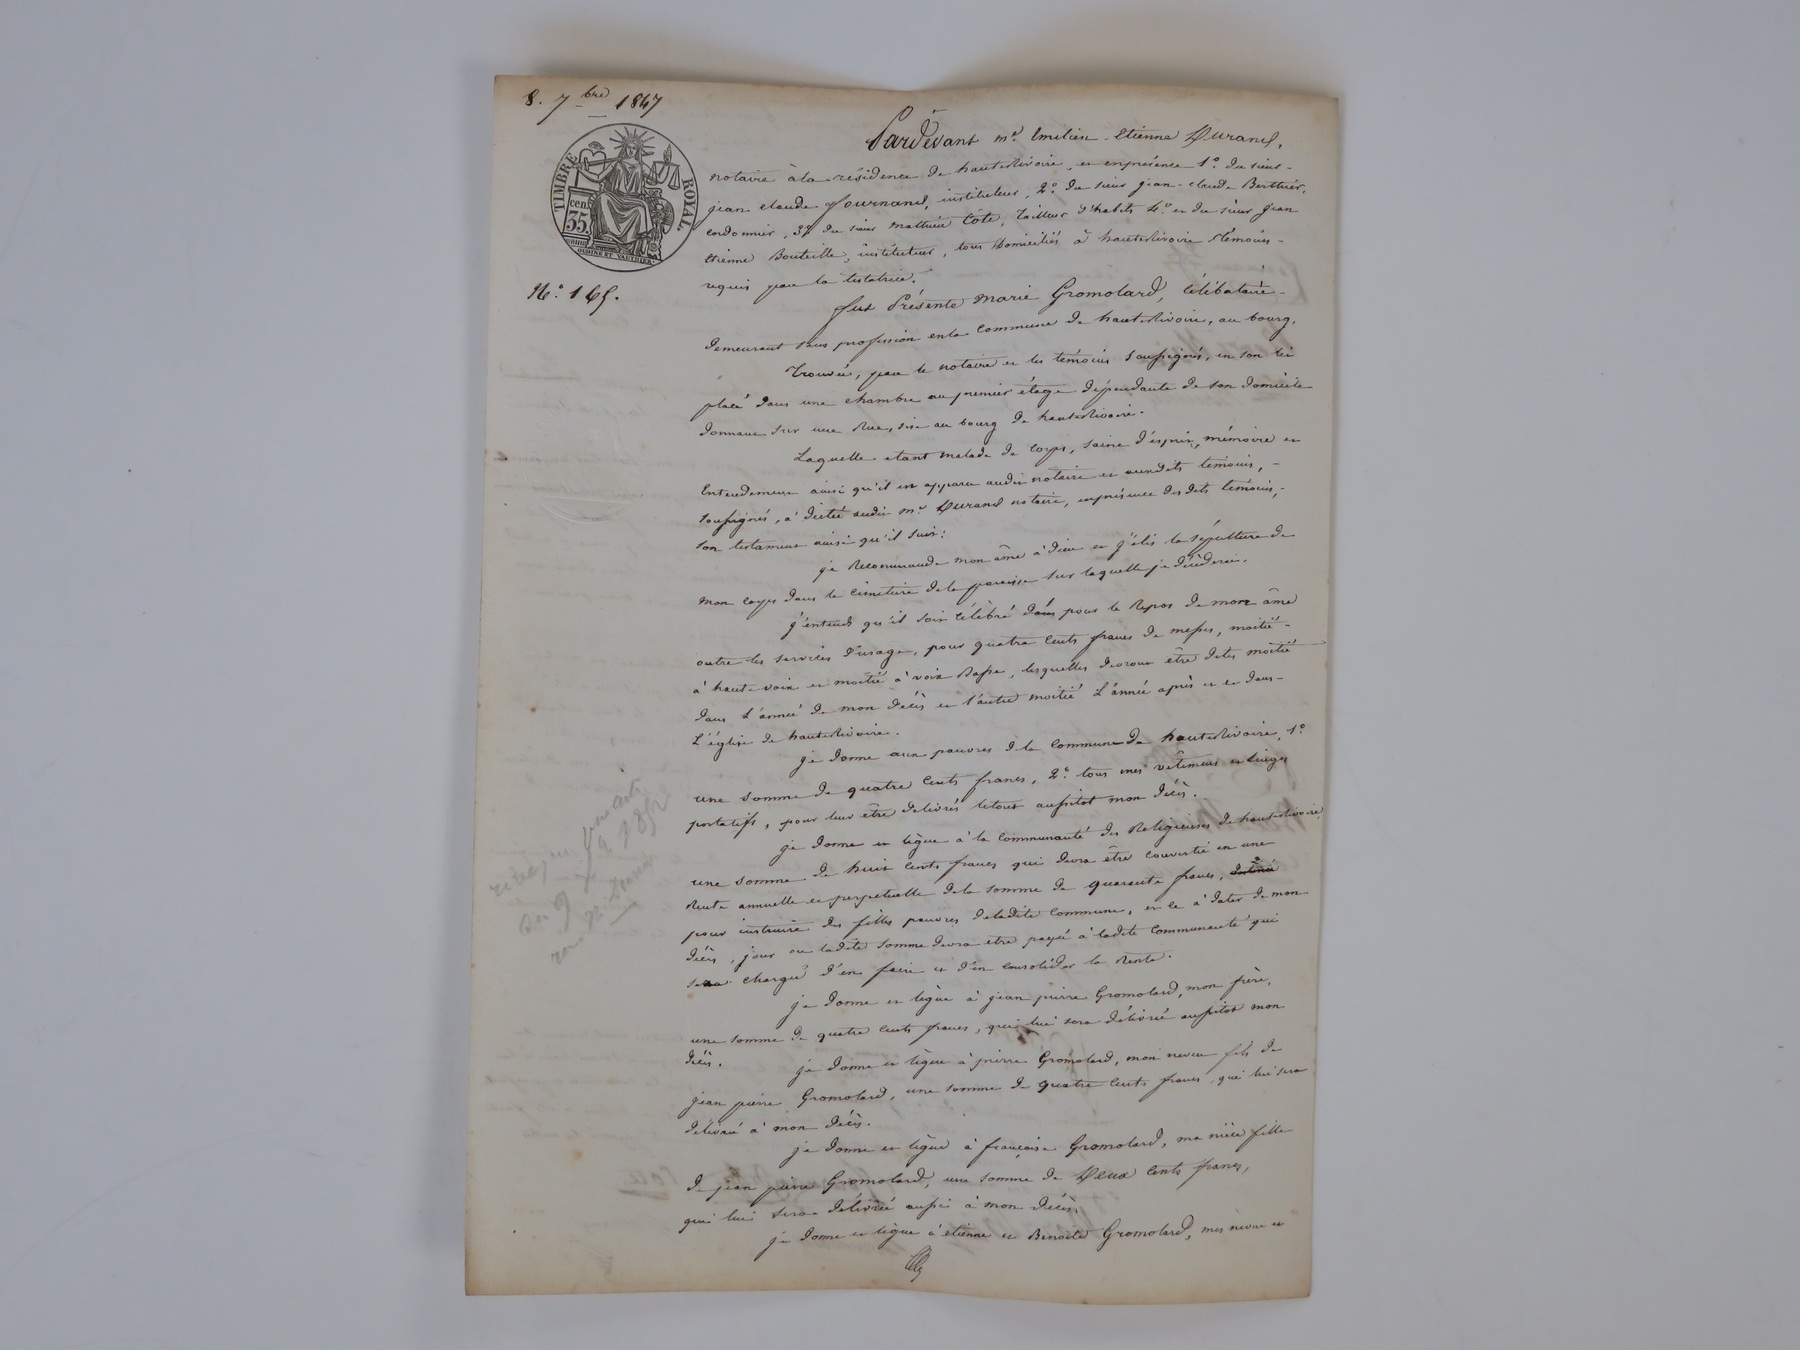 8. 7bre 1847
TIMBRE ROYAL.
cen. 35.
N.° 165.
Pardevant me Emilien Etienne Durand,
notaire à la résidence de hauterivoire, et en présence 1° du sieur
jean claude fournand, instituteur, 2° du sieur jean-claude Berthier,
cordonnier, 3° du sieur mathieu Côte, tailleur d'habits 4° et du sieur jean
etienne Bouteille, instituteur, tous domiciliés à hauterivoire témoins
requis par la testatrice.
fut Présente marie Gromolard, célibataire
demeurant sans profession en la commune de hauterivoire, au bourg.
trouvée, par le notaire et les témoins soussignés, en son lit
placé dans une chambre au premier étage dépendante de son domicile
donnant sur une Rue, sise au bourg de hauterivoire.
Laquelle etant malade de corps, saine d'esprit, mémoire et
Entendement ainsi qu'il est apparu audit notaire et auxdits témoins,
soussignés, a dicté audit me Durand notaire, en présence desdits témoins,
son testament ainsi qu'il suit:
je Recommande mon âme à dieu et j'élis la sépulture de
mon corps dans le cimetière de la paroisse sur laquelle je décèderai.
j'entends qu'il soit célébré pour le Repos de mon âme
outre les services d'usage, pour quatre cents francs de messes, moitié
à haute voix et moitié à voix Basse, lesquelles devront être dites moitié
dans L'année de mon décès et l'autre moitié L'année après et ce dans
L'église de hauterivoire.
je donne aux pauvres de la Commune de hauterivoire, 1°
une somme de quatre Cents francs, 2° tous mes vêtements et Linges
portatifs, pour leur être délivrés le tout aussitot mon décès.
je donne et lègue à la Communauté des Religieuses de hauterivoire,
une somme de huit cents francs qui devra être convertie en une
Rente annuelle et perpetuelle de la somme de quarante francs,
pour instruire des filles pauvres de ladite commune, et ce à dater de mon
décès, jour ou ladite somme devra etre payée à ladite Communauté qui
sera chargée d'en faire et d'en consolider la Rente.
je donne et lègue à jean pierre Gromolard, mon frère,
une somme de quatre cents francs, qui lui sera délivrée aussitot mon
décès.
je donne et lègue à pierre Gromolard, mon neveu fils de
jean pierre Gromolard, une somme de quatre Cents francs, qui lui sera
délivrée à mon décès.
je donne et lègue à françoise Gromolard, ma nièce fille
de jean pierre Gromolard, une somme de Deux Cents francs,
qui lui sera délivrée aussi à mon décès.
je donne et lègue à étienne et Benoite Gromolard, mes neveu et